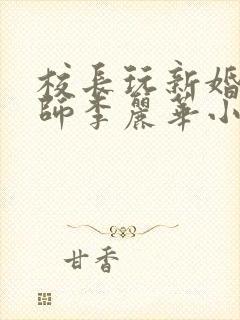 校長玩新婚
師李麗華小
甘香